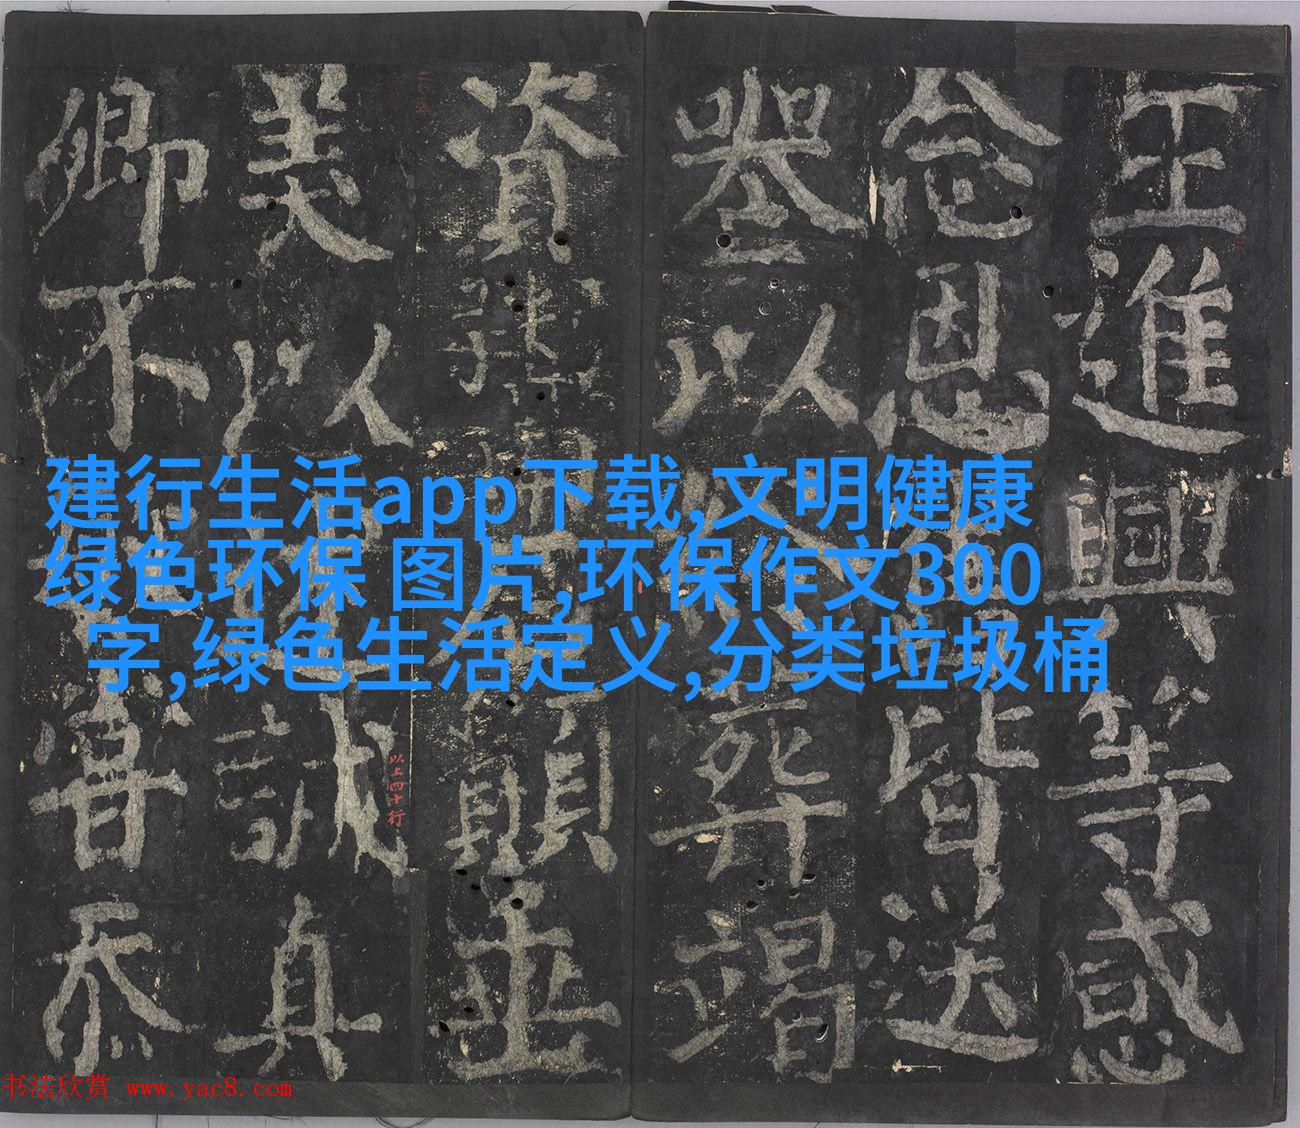 建行生活app下载,文明健康
绿色环保 图片,环保作文300
字,绿色生活定义,分类垃圾桶
王進興等感
念恩皆送
以葬竭
資顗並
美以誠真
卿不忝
以上四十行
书法欣赏 www.yac8.com